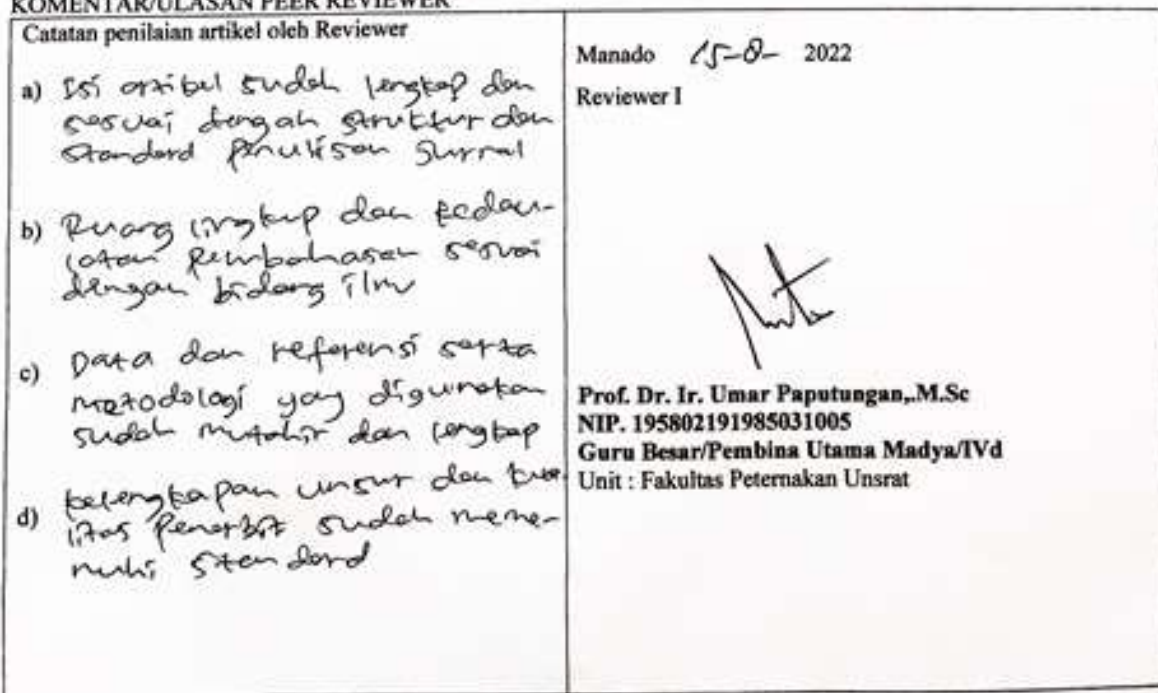 KOMENTAR/ULASAN PEER REVIEWER
Catatan penilaian artikel oleh Reviewer
a) Isi artikel sudah lengkap dan
sesuai dengan struktur dan
Standard Penulisan Jurnal
b) Ruang lingkup dan kedau-
latan Pembahasan sesuai
dengan bidang ilmu
c) Data dan referensi serta
metodologi yang digunakan
sudah mutahir dan lengkap
d) kelengkapan unsur dan kua
litas Penerbit sudah meme-
nuhi Standard
Manado 15-8- 2022
Reviewer I
Prof. Dr. Ir. Umar Paputungan,.M.Sc
NIP. 195802191985031005
Guru Besar/Pembina Utama Madya/IVd
Unit : Fakultas Peternakan Unsrat